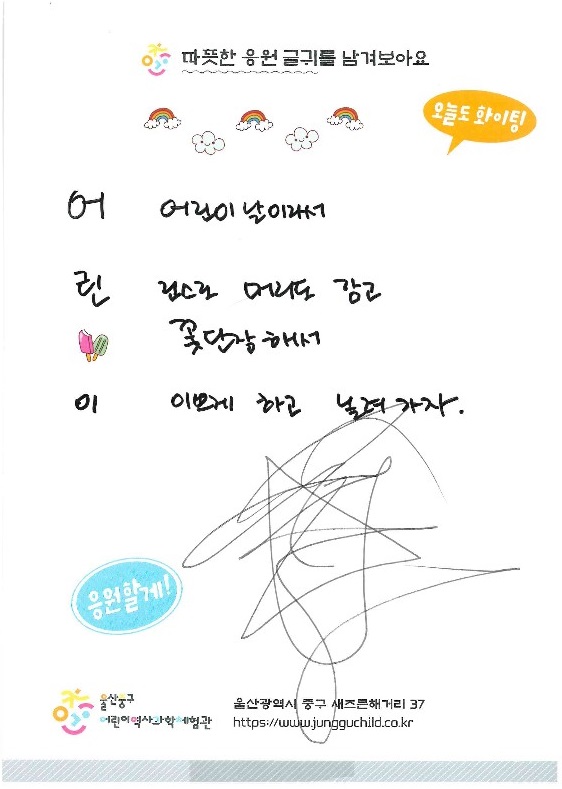 따뜻한 응원 글귀를 남겨보아요
오늘도 화이팅
어 어린이날이라서
린 린스로 머리도 감고
꽃단장해서
이 이쁘게 하고 놀러가자.
응원할게!
울산중구
어린이역사과학체험관
울산광역시 중구 새즈믄해거리 37
https://www.jungguchild.co.kr